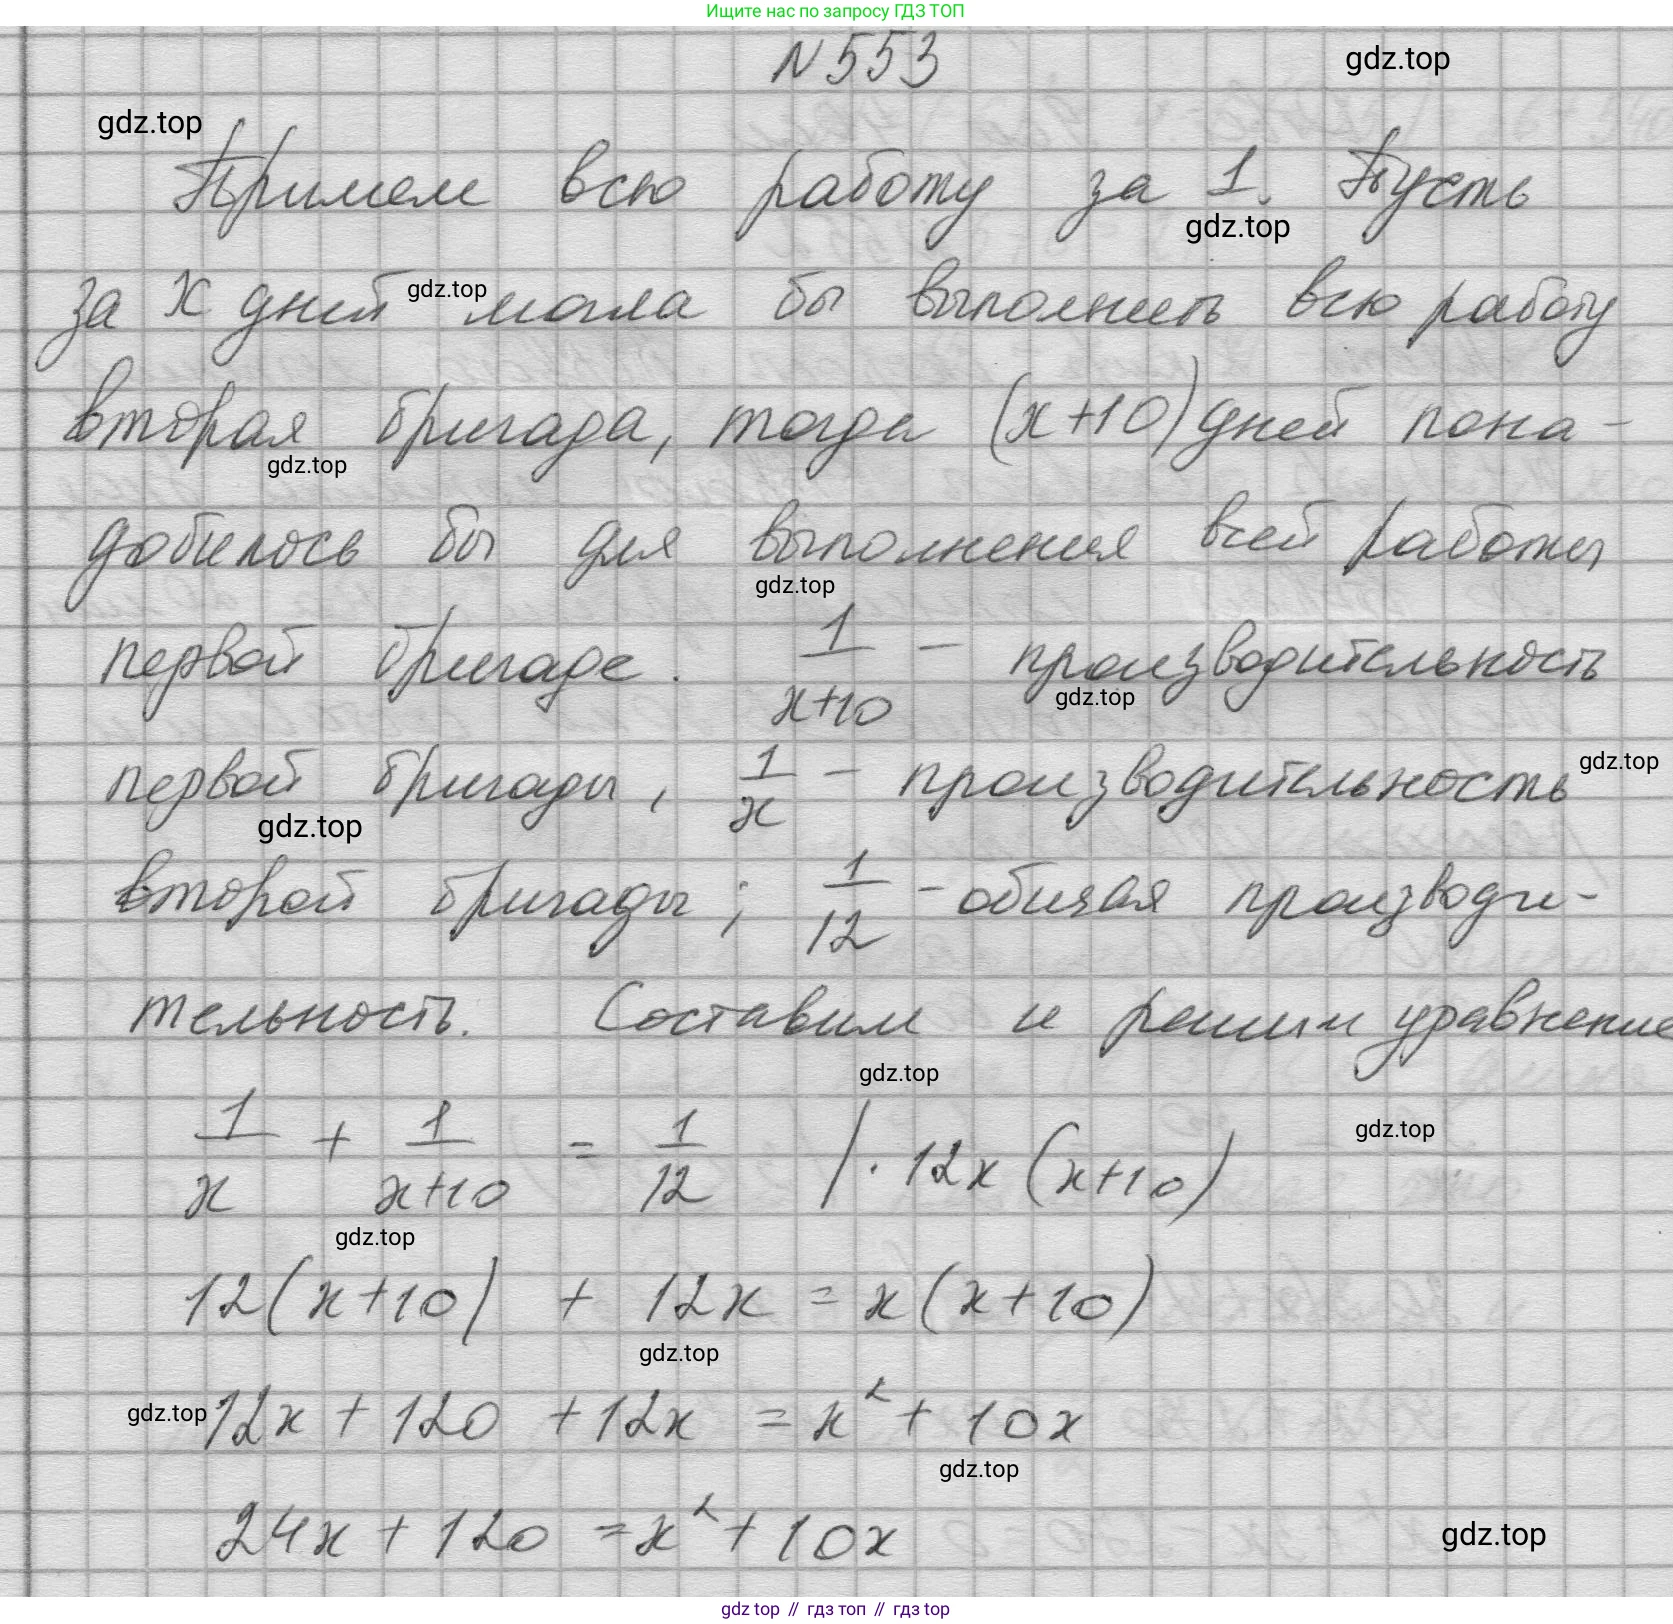 Ищите нас по запросу ГДЗ ТОП
N 553
gdz.top
gdz.top
Примем всю работу за 1. Пусть
gdz.top
за x дней могла бы выполнить всю работу
gdz.top
вторая бригада, тогда (x+10) дней пона-
gdz.top
добилось бы для выполнения всей работы
gdz.top
первой бригаде. 1/(x+10) – производительность
gdz.top
первой бригады, 1/x – производительность
gdz.top
gdz.top
второй бригады; 1/12 – общая производи-
тельность. Составим и решим уравнение
gdz.top
1/x + 1/(x+10) = 1/12 | · 12x (x+10)
gdz.top
gdz.top
12(x+10) + 12x = x(x+10)
gdz.top
12x + 120 + 12x = x² + 10x
gdz.top
gdz.top
24x + 120 = x² + 10x
gdz.top
gdz top // гдз топ // гдз top